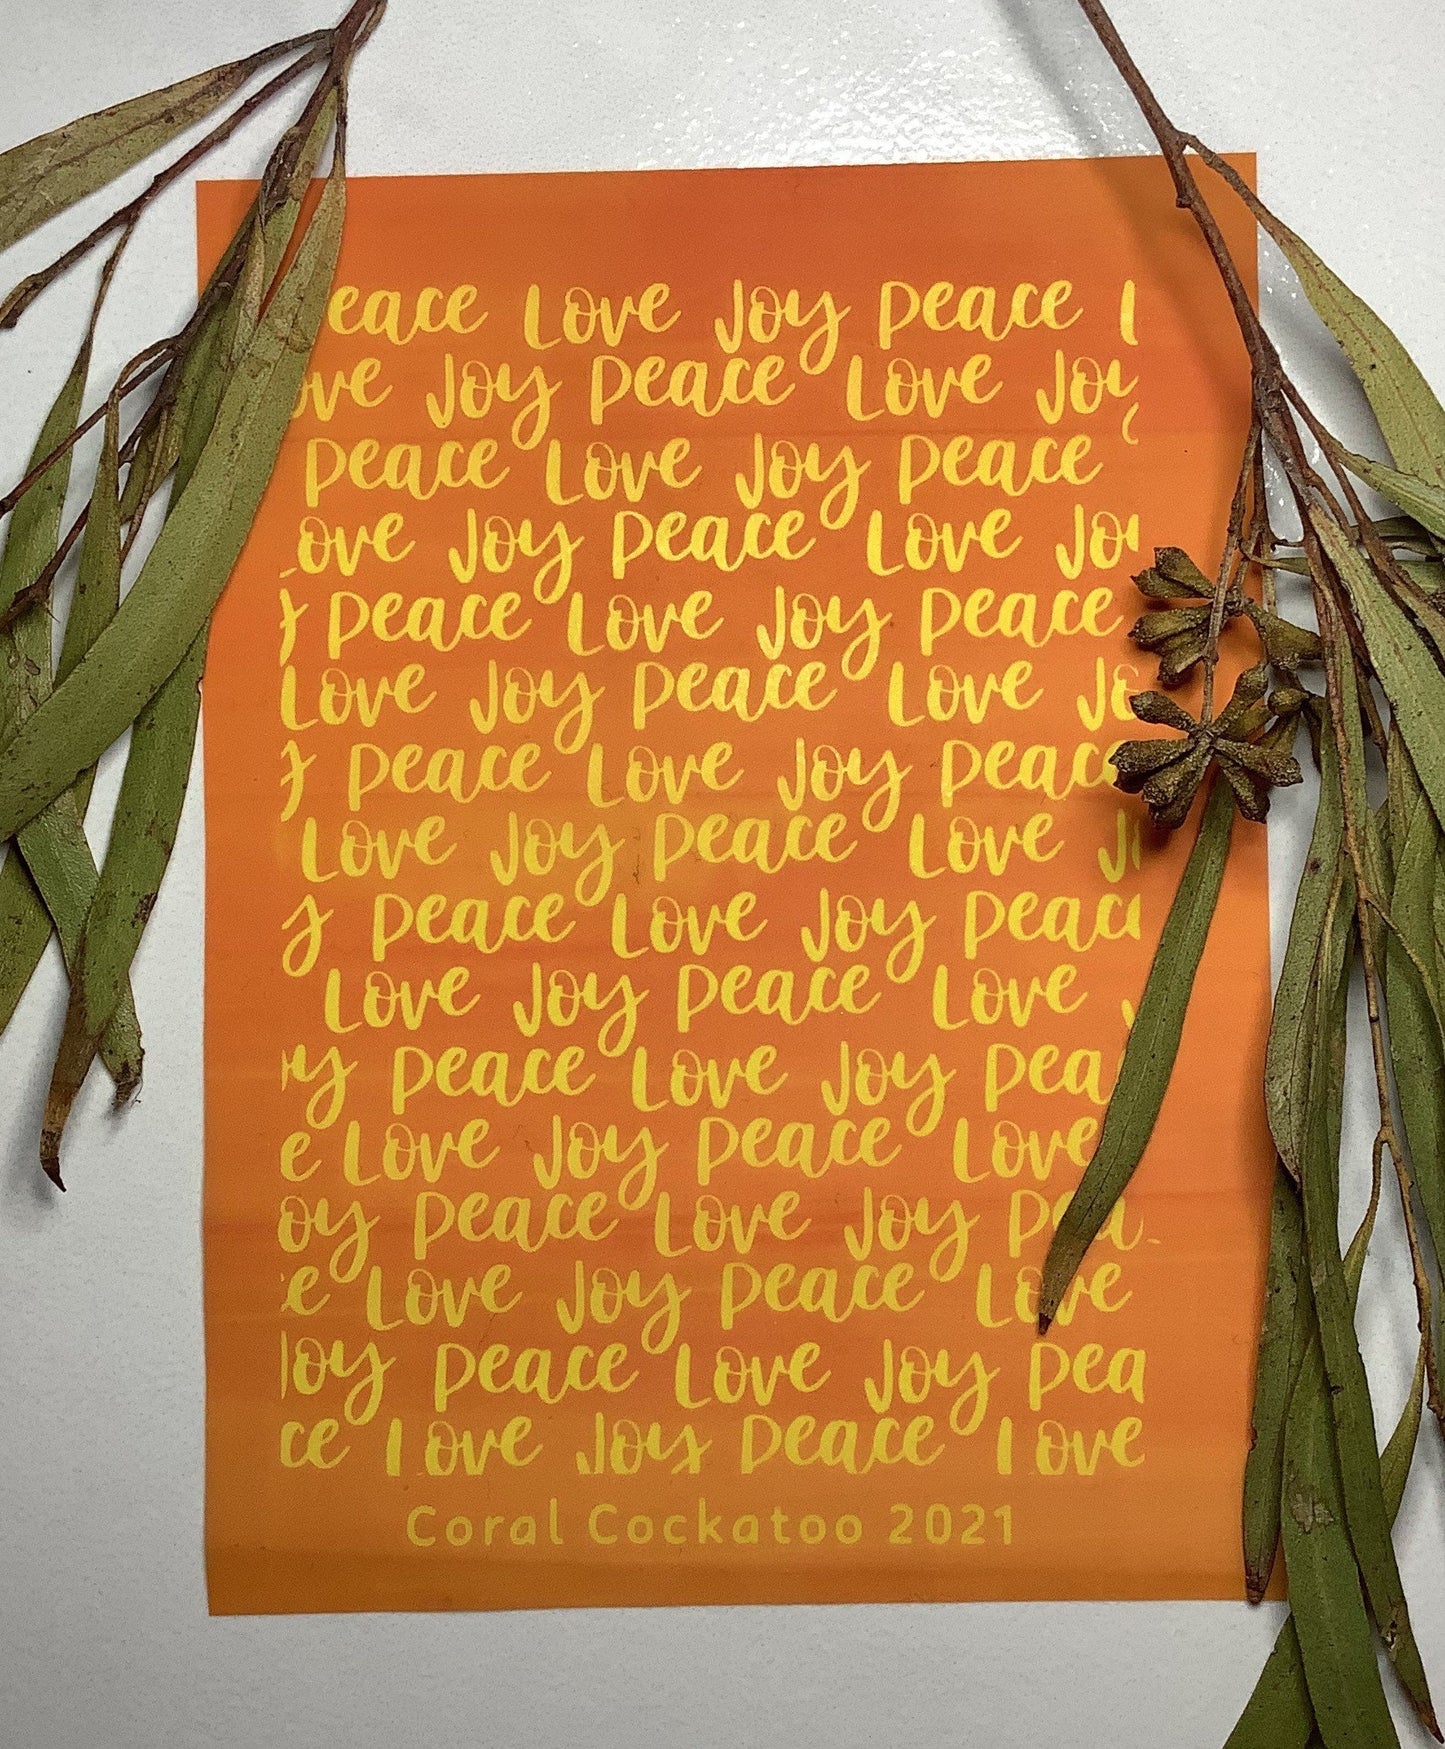 eace Love Joy Peace L
ove Joy Peace Love Joy
Peace Love Joy Peace
ove Joy Peace Love Joy
y Peace Love Joy Peace
Love Joy Peace Love Jo
y Peace Love Joy Peace
Love Joy Peace Love J
y Peace Love Joy Peace
Love Joy Peace Love J
oy Peace Love Joy Pea
e Love Joy Peace Love
oy Peace Love Joy Pea
e Love Joy Peace Love
Joy Peace Love Joy Pea
ce Love Joy Peace Love
Coral Cockatoo 2021